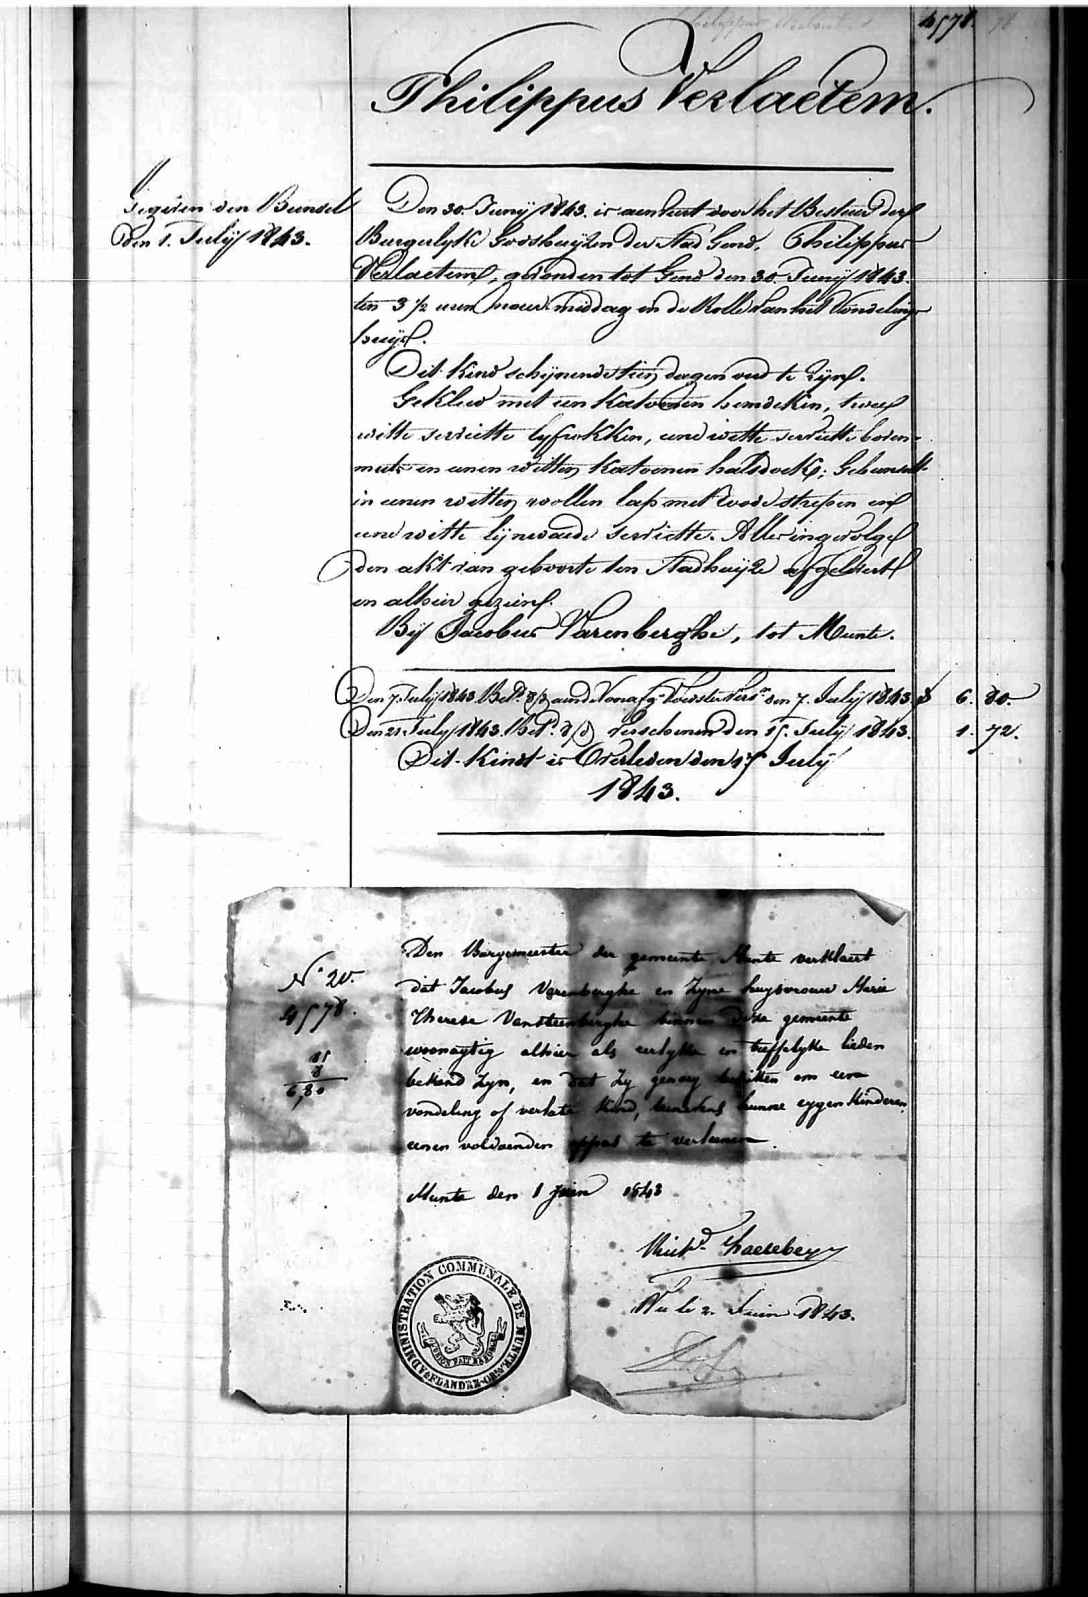 4578.
Philippus Verlaetem.
Gegeven den Bunsel
den 1. Julij 1843.
Den 30. Junij 1843. is aenveert door het Bestuur der
Burgerlyke Godshuijzen der Stad Gend, Philippus
Verlaetem, gevonden tot Gend den 30. Junij 1843.
ten 3 1/2 uren naer middag in de Rolle van het Vondelings
huijs.
Dit kind schijnende tien dagen oud te zijn.
Gekleed met een katoenen hemdeken, twee
witte serviette lyfrokken, eene witte serviette boven-
muts en eenen witten katoenen halsdoek; Gebunselt
in eenen witten wollen lap met roode strepen en
eene witte lijnwaede serviette. Alles ingevolge
den akt van geboorte ten Stadhuijze afgelevert
en alhier gezien.
Bij Jacobus Varenberghe, tot Munte.
Den 7. Julij 1843. Bet. den 7. Julij 1843. 6. 80.
Den 21. Julij 1843. Bet. verschenen den 15. Julij 1843. 1. 72.
Dit kind is Overleden den 15 Julij
1843.
Den Borgemeester der gemeente Munte verklaert
N° 20.
dat Jacobus Varenberghe en zyne huysvrouw Marie
4578.
Therese Vansteenberghe binnen deze gemeente
woonagtig alhier als eerlyke en treffelyke lieden
15
8
bekend zyn, en dat zy genoeg bezitten om een
6,80
vondeling of verlate kind, benevens hunne eygen kinderen
eenen voldoenden oppas te verleenen.
Munte den 1 juin 1843
Vu le 2. Juin 1843.
ADMINISTRATION COMMUNALE DE MUNTE
FLANDRE-OR.